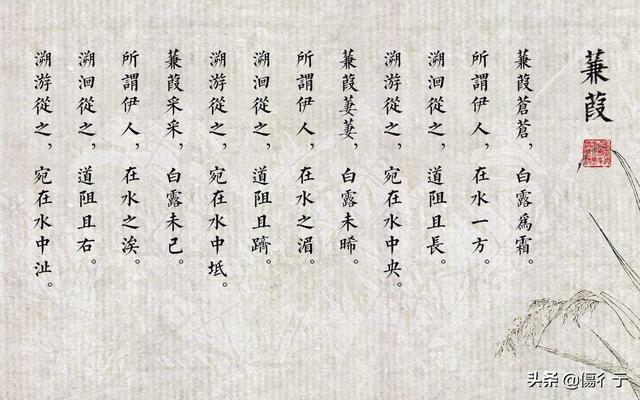 蒹葭
蒹葭蒼蒼，白露爲霜。
所謂伊人，在水一方。
溯洄從之，道阻且長。
溯游從之，宛在水中央。
蒹葭萋萋，白露未晞。
所謂伊人，在水之湄。
溯洄從之，道阻且躋。
溯游從之，宛在水中坻。
蒹葭采采，白露未已。
所謂伊人，在水之涘。
溯洄從之，道阻且右。
溯游從之，宛在水中沚。
头条 @傷彳亍